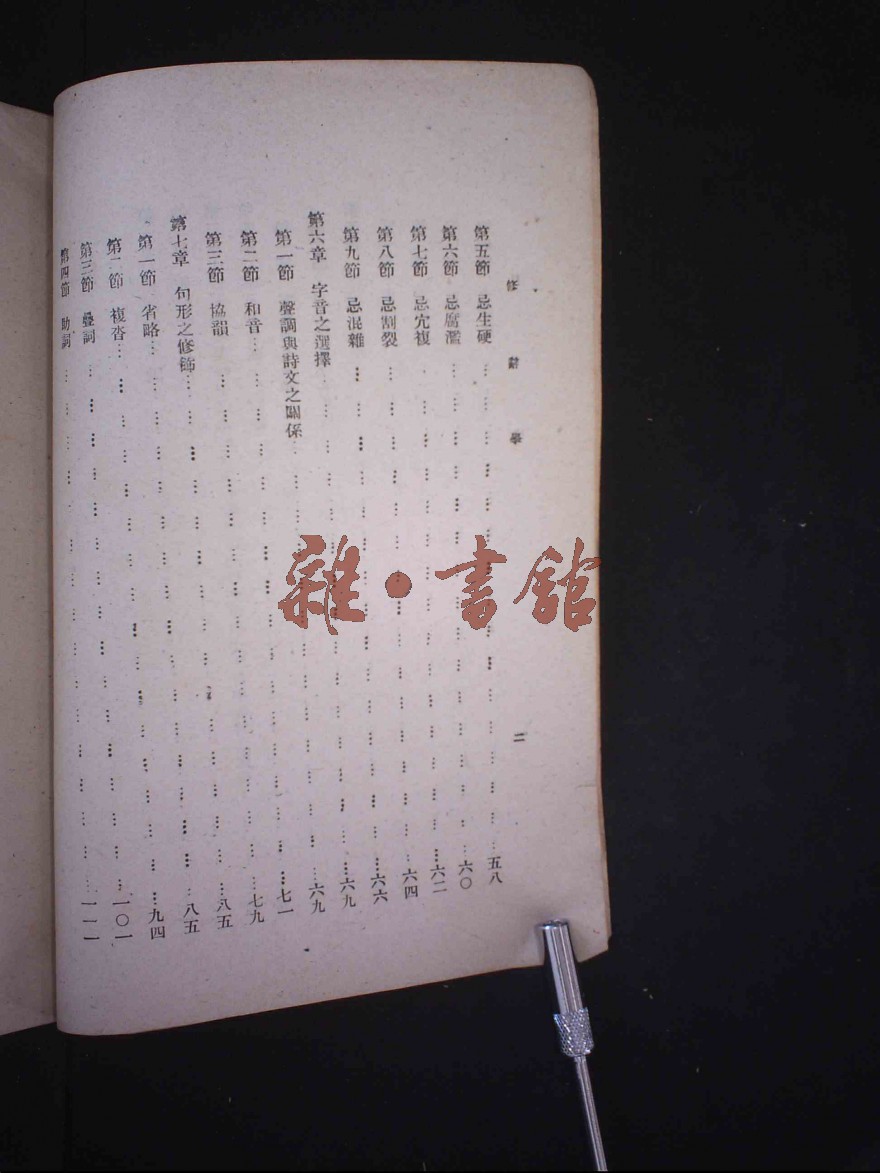 修辭學 二
第五節 忌生硬……五八
第六節 忌腐濫……六〇
第七節 忌宂複……六二
第八節 忌割裂……六四
第九節 忌混雜……六六
第六章 字音之選擇……六九
第一節 聲調與詩文之關係……六九
第二節 和音……七一
第三節 協韻……七九
第七章 句形之修飾……八五
第一節 省略……八五
第二節 複沓……九四
第三節 疊詞……一〇一
第四節 助詞……一一一
雜·書館